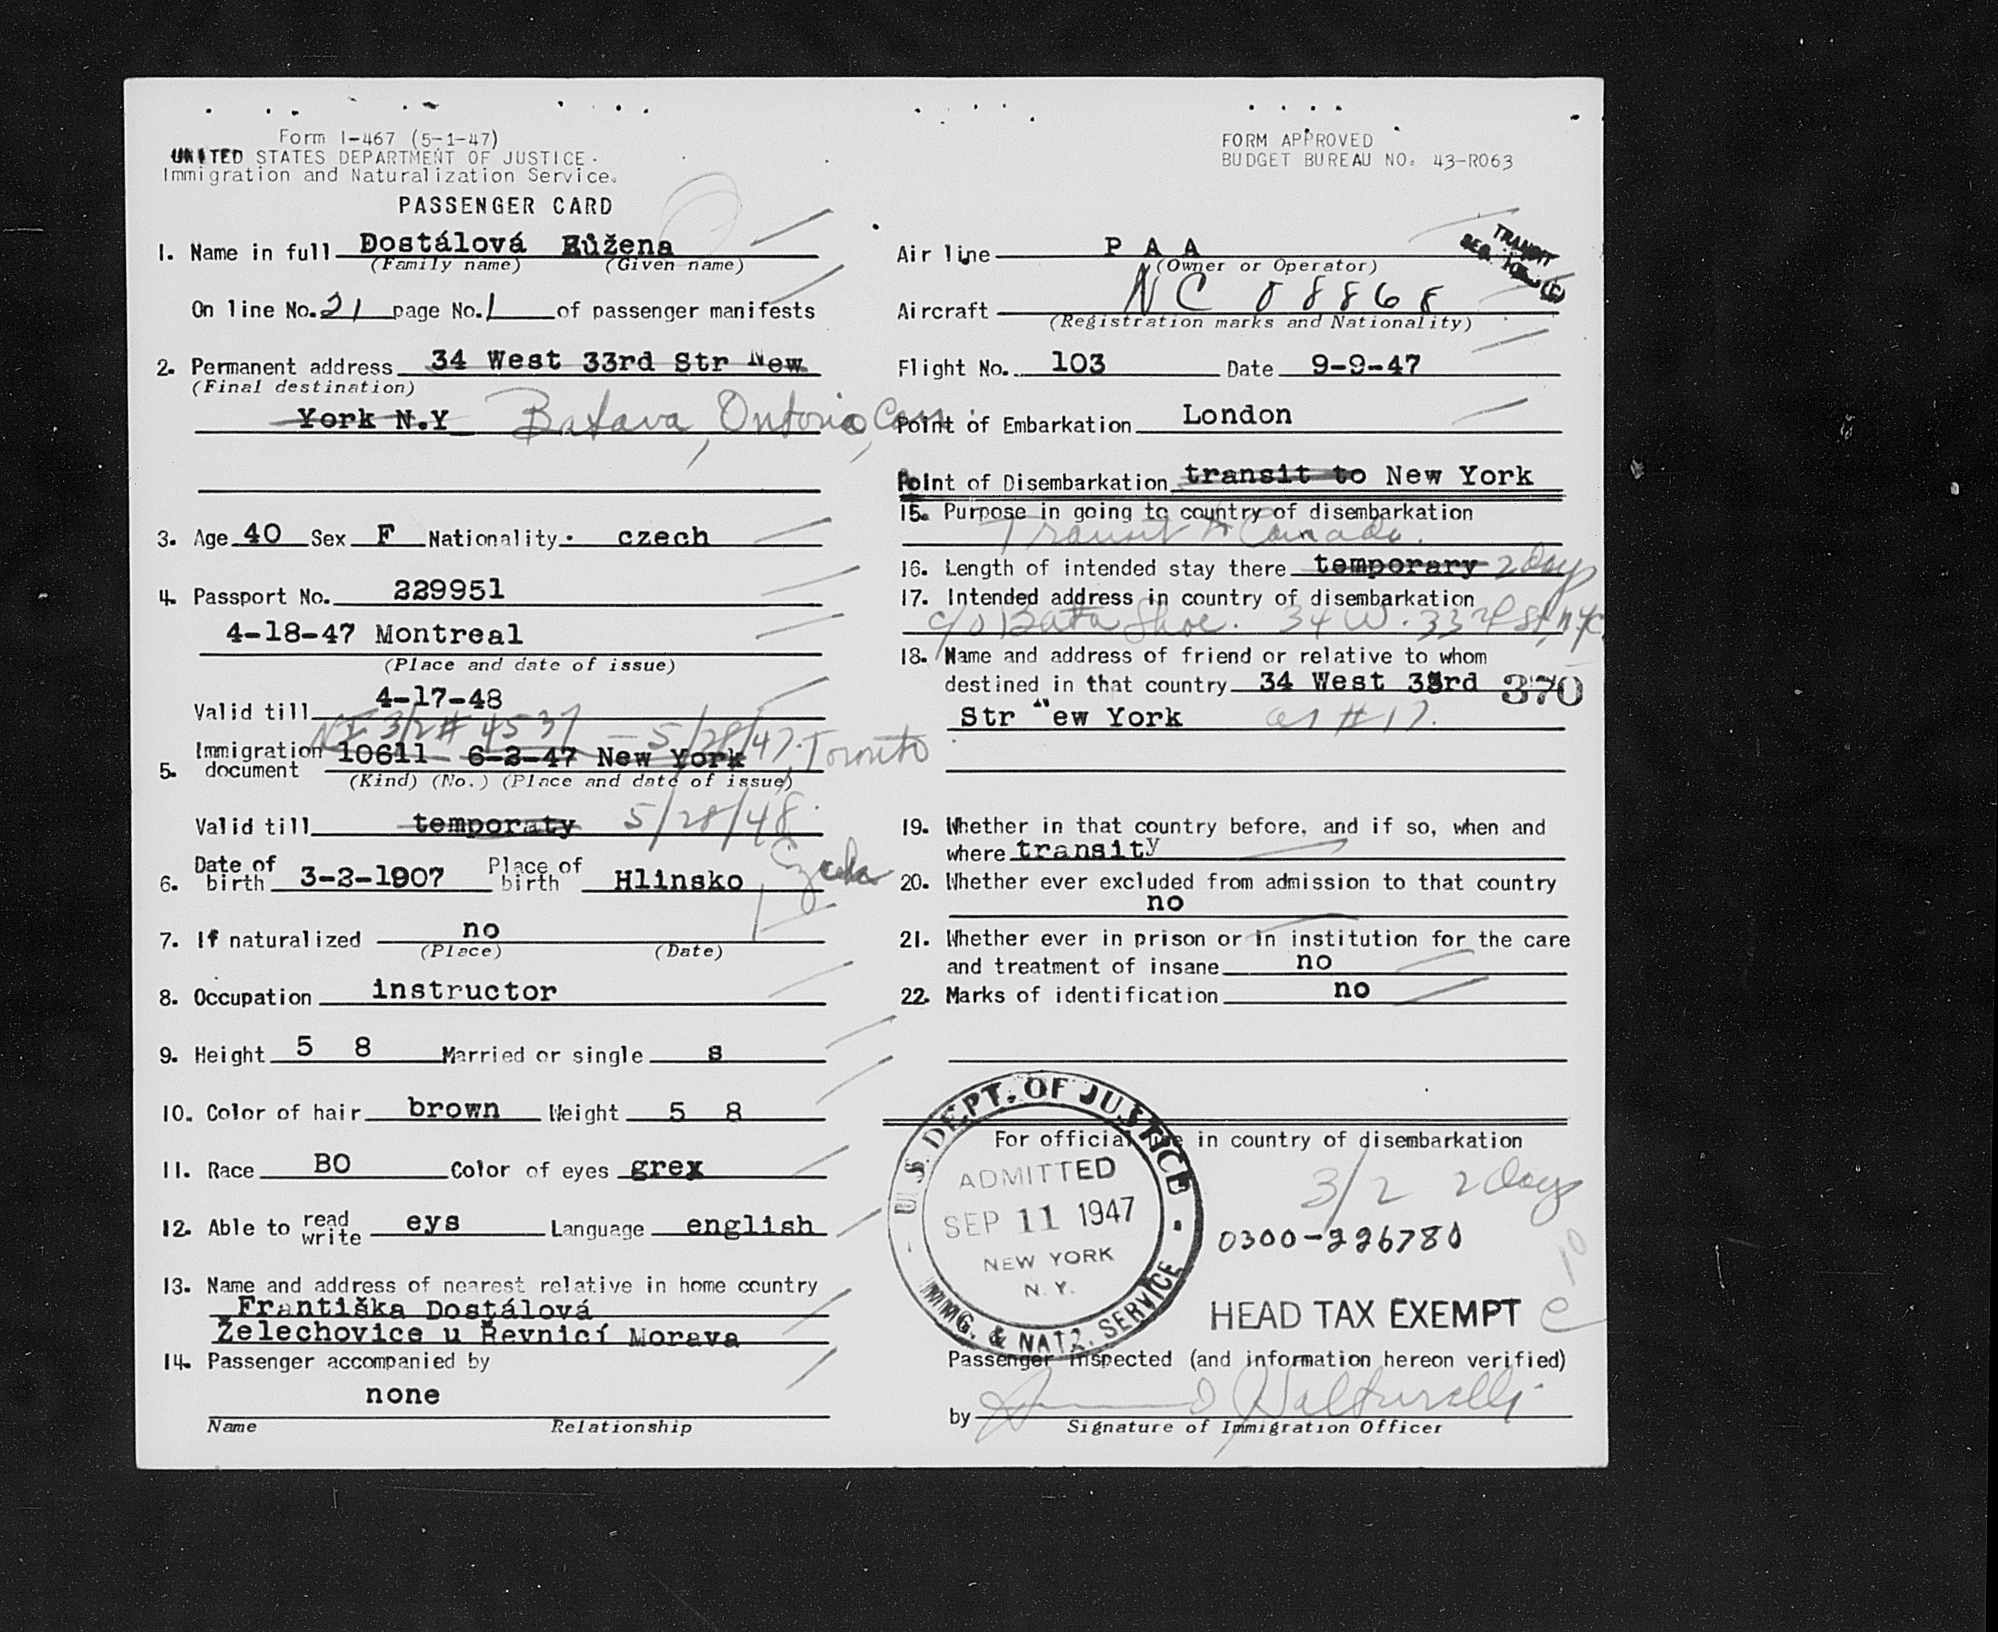 Form I-467 (5-1-47)
UNITED STATES DEPARTMENT OF JUSTICE
Immigration and Naturalization Service.
PASSENGER CARD
FORM APPROVED
BUDGET BUREAU NO. 43-R063
1. Name in full Dostálová Růžena
(Family name) (Given name)
On line No. 21 page No. 1 of passenger manifests
2. Permanent address 34 West 33rd Str New
(Final destination)
York N.Y Batava, Ontorio, Can.
3. Age 40 Sex F Nationality czech
4. Passport No. 229951
4-18-47 Montreal
(Place and date of issue)
Valid till 4-17-48
NI 3/2 # 4537 - 5/28/47. Toronto
5. Immigration document 10611 6-2-47 New York
(Kind) (No.) (Place and date of issue)
Valid till temporaty 5/28/48.
6. Date of birth 3-2-1907 Place of birth Hlinsko Czecho
7. If naturalized no
(Place) (Date)
8. Occupation instructor
9. Height 5 8 Married or single s
10. Color of hair brown Weight 5 8
11. Race BO Color of eyes grey
12. Able to read write eys Language english
13. Name and address of nearest relative in home country
Františka Dostálová
Želechovice u Řevnicí Morava
14. Passenger accompanied by
none
Name Relationship
Air line P A A
(Owner or Operator)
TRANSIT
SEC.
Aircraft NC 08868
(Registration marks and Nationality)
Flight No. 103 Date 9-9-47
Point of Embarkation London
Point of Disembarkation transit to New York
15. Purpose in going to country of disembarkation
Transit to Canada.
16. Length of intended stay there temporary 2 days
17. Intended address in country of disembarkation
c/o Batta Shoe. 34 W. 33rd St, nyc
18. Name and address of friend or relative to whom
destined in that country 34 West 33rd 370
Str New York as #17.
19. Whether in that country before, and if so, when and
where transity
20. Whether ever excluded from admission to that country
no
21. Whether ever in prison or in institution for the care
and treatment of insane no
22. Marks of identification no
For official use in country of disembarkation
U.S. DEPT. OF JUSTICE
ADMITTED
SEP 11 1947
NEW YORK
N. Y.
IMMG. & NATZ. SERVICE
3/2 2 days
0300-226780
HEAD TAX EXEMPT
Passenger inspected (and information hereon verified)
by
Signature of Immigration Officer